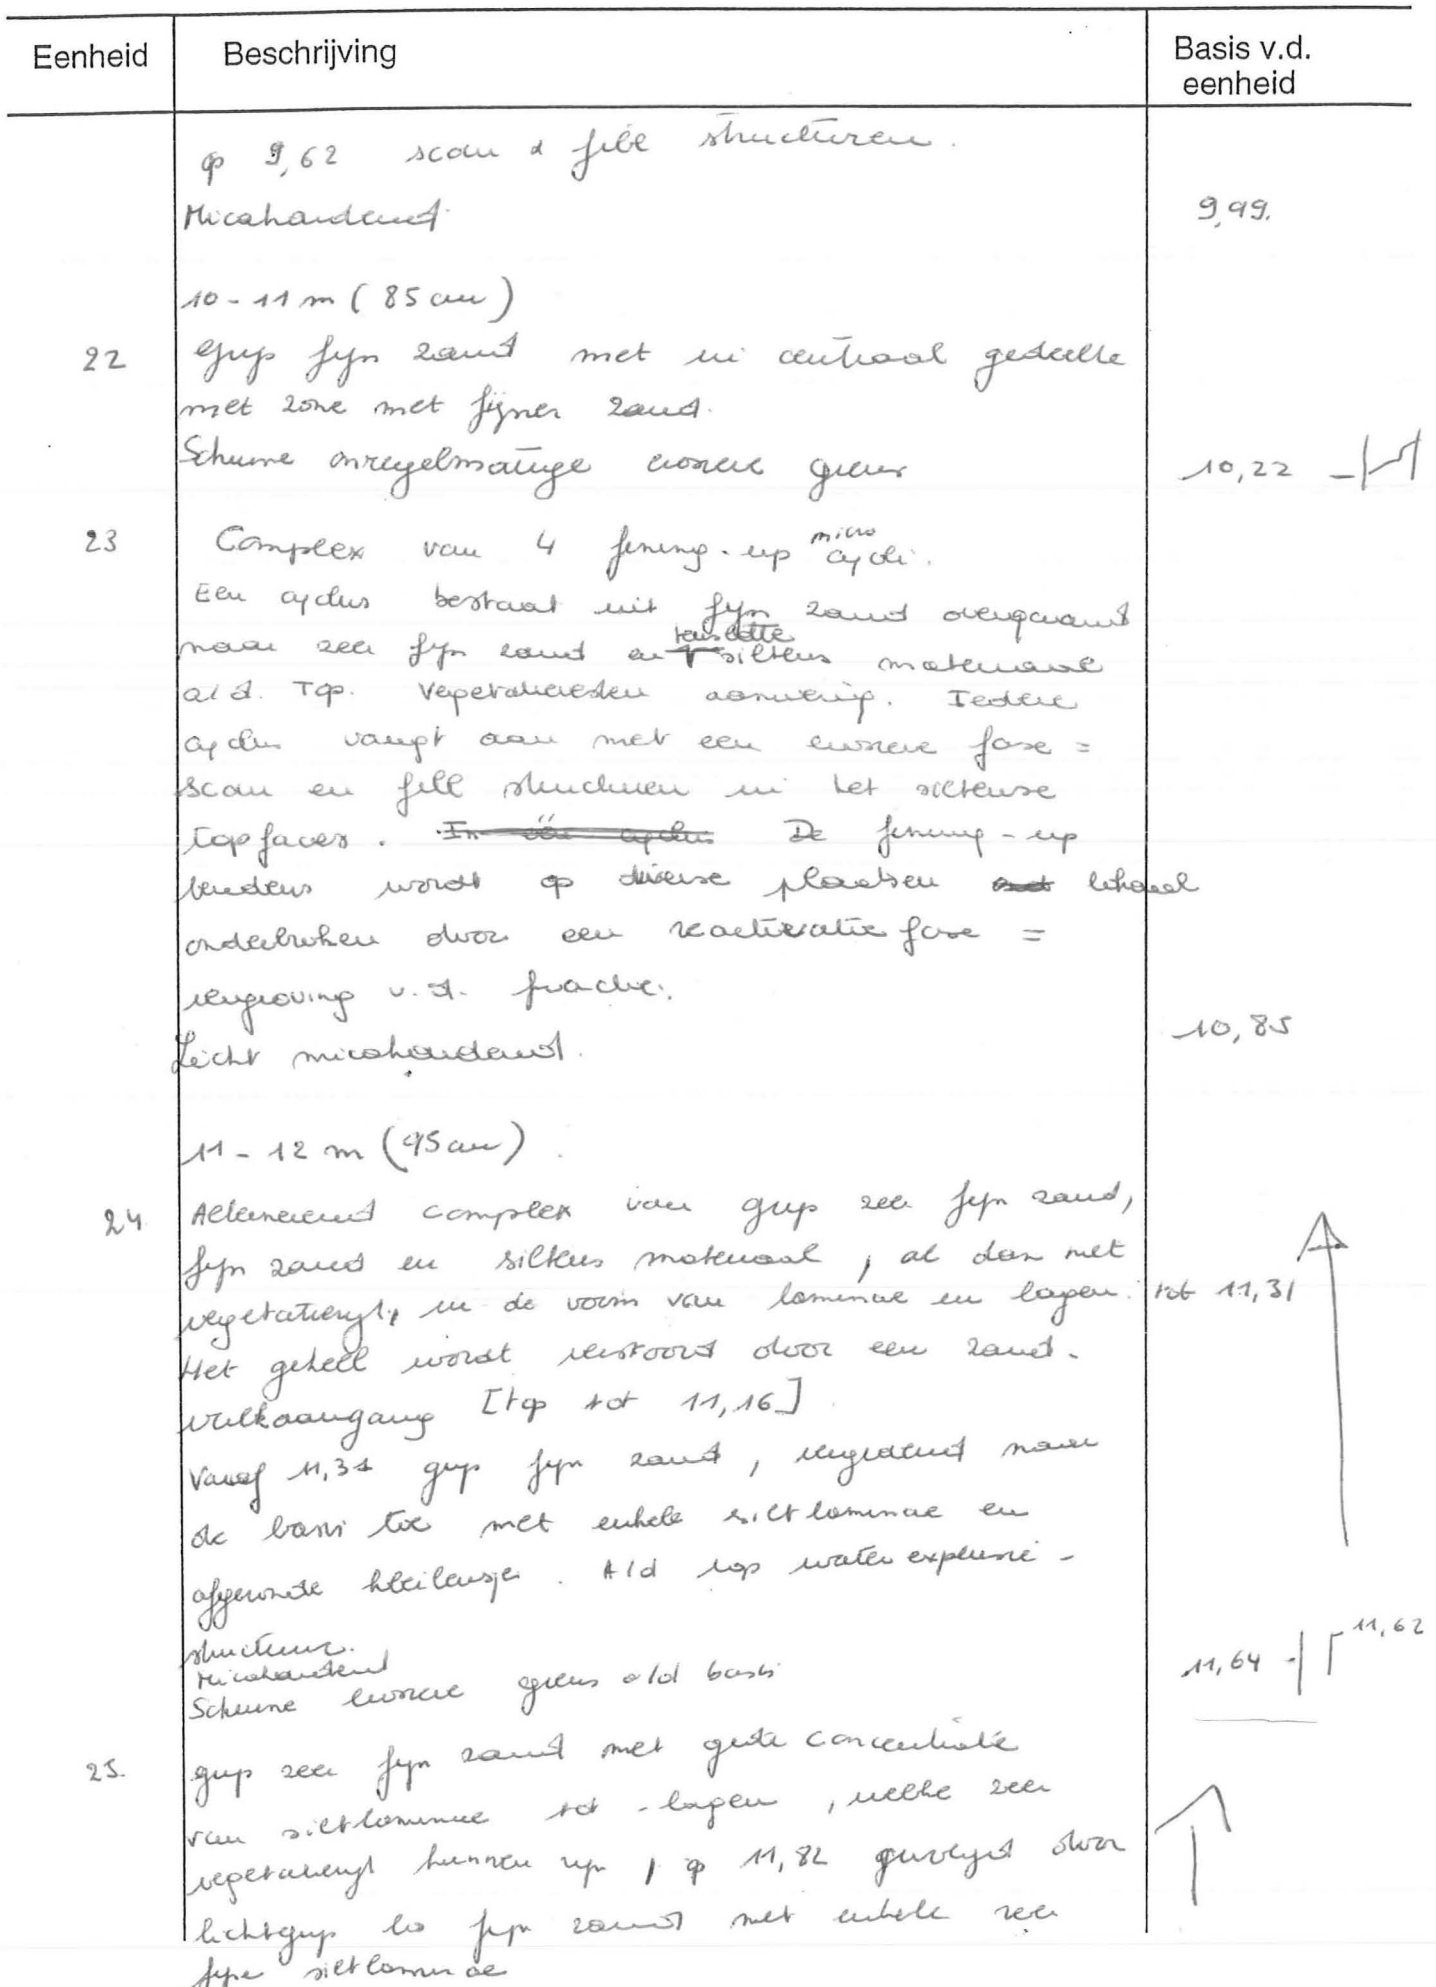 Eenheid Beschrijving Basis v.d. eenheid
op 9,62 scour & fill structuren.
Micahoudend. 9,99.
10-11 m (85 cm)
22 Grijs fijn zand met in centraal gedeelte
met zone met fijner zand.
Scherpe onregelmatige erosieve grens 10,22
23 Complex van 4 fining-up micro cycli.
Een cyclus bestaat uit fijn zand overgaand
naar zeer fijn zand en silteus materiaal
a/d. Top. Vegetatieresten aanwezig. Iedere
cyclus vangt aan met een erosieve fase =
scour en fill structuren in het silteuse
topfacies. De fining-up
tendens wordt op diverse plaatsen lokaal
onderbroken door een reactivatie fase =
vergroving v.d. fractie.
Licht micahoudend. 10,85
11-12 m (95 cm).
24 Alternerend complex van grijs zeer fijn zand,
fijn zand en silteus materiaal, al dan niet
vegetatierijk, in de vorm van laminae en lagen. tot 11,31
Het geheel wordt verstoord door een zand-
vulkaangang [top tot 11,16]
Vanaf 11,31 grijs fijn zand, vergrovend naar
de basis toe met enkele siltlaminae en
afgeronde kleilensjes. A/d top waterexplusie-
structuur.
Micahoudend
Scherpe erosieve grens a/d basis 11,64 11,62
25. grijs zeer fijn zand met grote concentratie
van siltlaminae tot -lagen, welke zeer
vegetatierijk kunnen zijn, op 11,82 gevolgd door
lichtgrijs fijn zand met enkele zeer
fijne siltlaminae